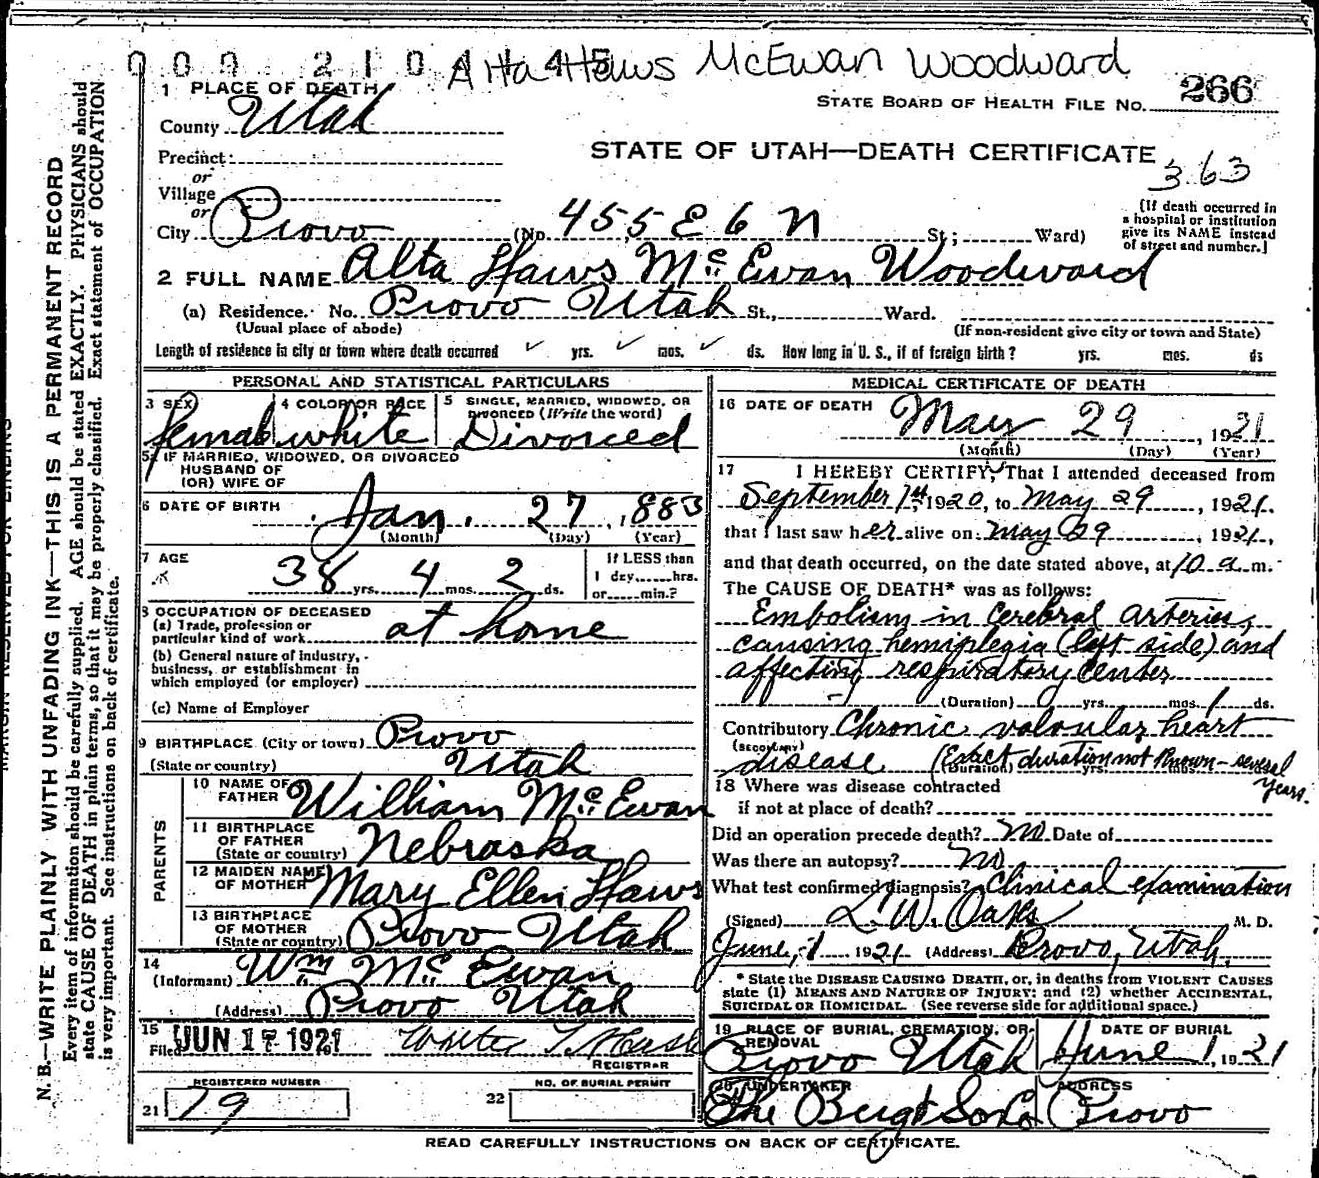 000 210 445 Alta Haws McEwan Woodward
STATE BOARD OF HEALTH FILE NO. 266
1 PLACE OF DEATH
County Utah
Precinct
or
Village
or
City Provo (No. 455 E 6 N St; Ward)
STATE OF UTAH—DEATH CERTIFICATE
363
(If death occurred in a hospital or institution give its NAME instead of street and number.)
2 FULL NAME Alta Haws McEwan Woodward
(a) Residence. No. Provo Utah St., Ward.
(Usual place of abode) (If non-resident give city or town and State)
Length of residence in city or town where death occurred yrs. mos. ds. How long in U. S., if of foreign birth? yrs. mos. ds
PERSONAL AND STATISTICAL PARTICULARS
3 SEX female
4 COLOR OR RACE white
5 SINGLE, MARRIED, WIDOWED, OR DIVORCED (Write the word) Divorced
5a IF MARRIED, WIDOWED, OR DIVORCED
HUSBAND OF
(OR) WIFE OF
6 DATE OF BIRTH Jan. 27, 1883
(Month) (Day) (Year)
7 AGE 38 yrs. 4 mos. 2 ds.
If LESS than
1 day, hrs.
or min.?
8 OCCUPATION OF DECEASED
(a) Trade, profession or
particular kind of work at home
(b) General nature of industry,
business, or establishment in
which employed (or employer)
(c) Name of Employer
9 BIRTHPLACE (City or town) Provo
(State or country) Utah
PARENTS
10 NAME OF FATHER William McEwan
11 BIRTHPLACE OF FATHER (State or country) Nebraska
12 MAIDEN NAME OF MOTHER Mary Ellen Haws
13 BIRTHPLACE OF MOTHER (State or country) Provo Utah
14
(Informant) Wm McEwan
(Address) Provo Utah
15
Filed JUN 17 1921
REGISTRAR
REGISTERED NUMBER
21 79
NO. OF BURIAL PERMIT
22
MEDICAL CERTIFICATE OF DEATH
16 DATE OF DEATH May 29, 1921
(Month) (Day) (Year)
17 I HEREBY CERTIFY, That I attended deceased from
September 1st, 1920, to May 29, 1921.
that I last saw her alive on May 29, 1921,
and that death occurred, on the date stated above, at 10 a.m.
The CAUSE OF DEATH* was as follows:
Embolism in Cerebral arteries,
causing hemiplegia (left side) and
affecting respiratory center
(Duration) yrs. mos. 1 ds.
Contributory Chronic valvular heart
(SECONDARY) disease (Exact duration not known - several years.
(Duration) yrs. mos.
18 Where was disease contracted
if not at place of death?
Did an operation precede death? No Date of
Was there an autopsy? No
What test confirmed diagnosis? Clinical examination
(Signed) L. W. Oaks M. D.
June, 1 1921 (Address) Provo, Utah.
* State the DISEASE CAUSING DEATH, or, in deaths from VIOLENT CAUSES
state (1) MEANS AND NATURE OF INJURY; and (2) whether ACCIDENTAL,
SUICIDAL OR HOMICIDAL. (See reverse side for additional space.)
19 PLACE OF BURIAL, CREMATION, OR REMOVAL Provo Utah
DATE OF BURIAL June 1, 1921
20 UNDERTAKER The Berg & Sons Co
ADDRESS Provo
READ CAREFULLY INSTRUCTIONS ON BACK OF CERTIFICATE.
MARGIN RESERVED FOR BINDING
N. B.—WRITE PLAINLY WITH UNFADING INK—THIS IS A PERMANENT RECORD
Every item of information should be carefully supplied. AGE should be stated EXACTLY. PHYSICIANS should
state CAUSE OF DEATH in plain terms, so that it may be properly classified. Exact statement of OCCUPATION
is very important. See instructions on back of certificate.